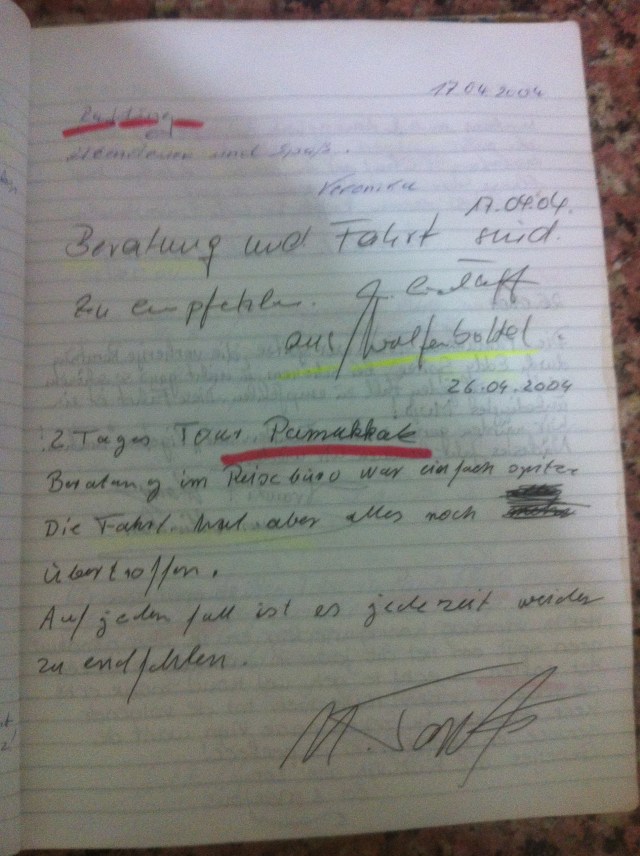 17.04.2004
und Spaß.
Veronika
17.04.04.
Beratung und Fahrt sind
zu empfehlen.
aus Wolfenbüttel
26.04.2004
2 Tages Tour Pamukkale
Beratung im Reisebüro war einfach spitze
Die Fahrt hat aber alles noch
übertroffen.
Auf jeden fall ist es jederzeit weider
zu endfehlen.